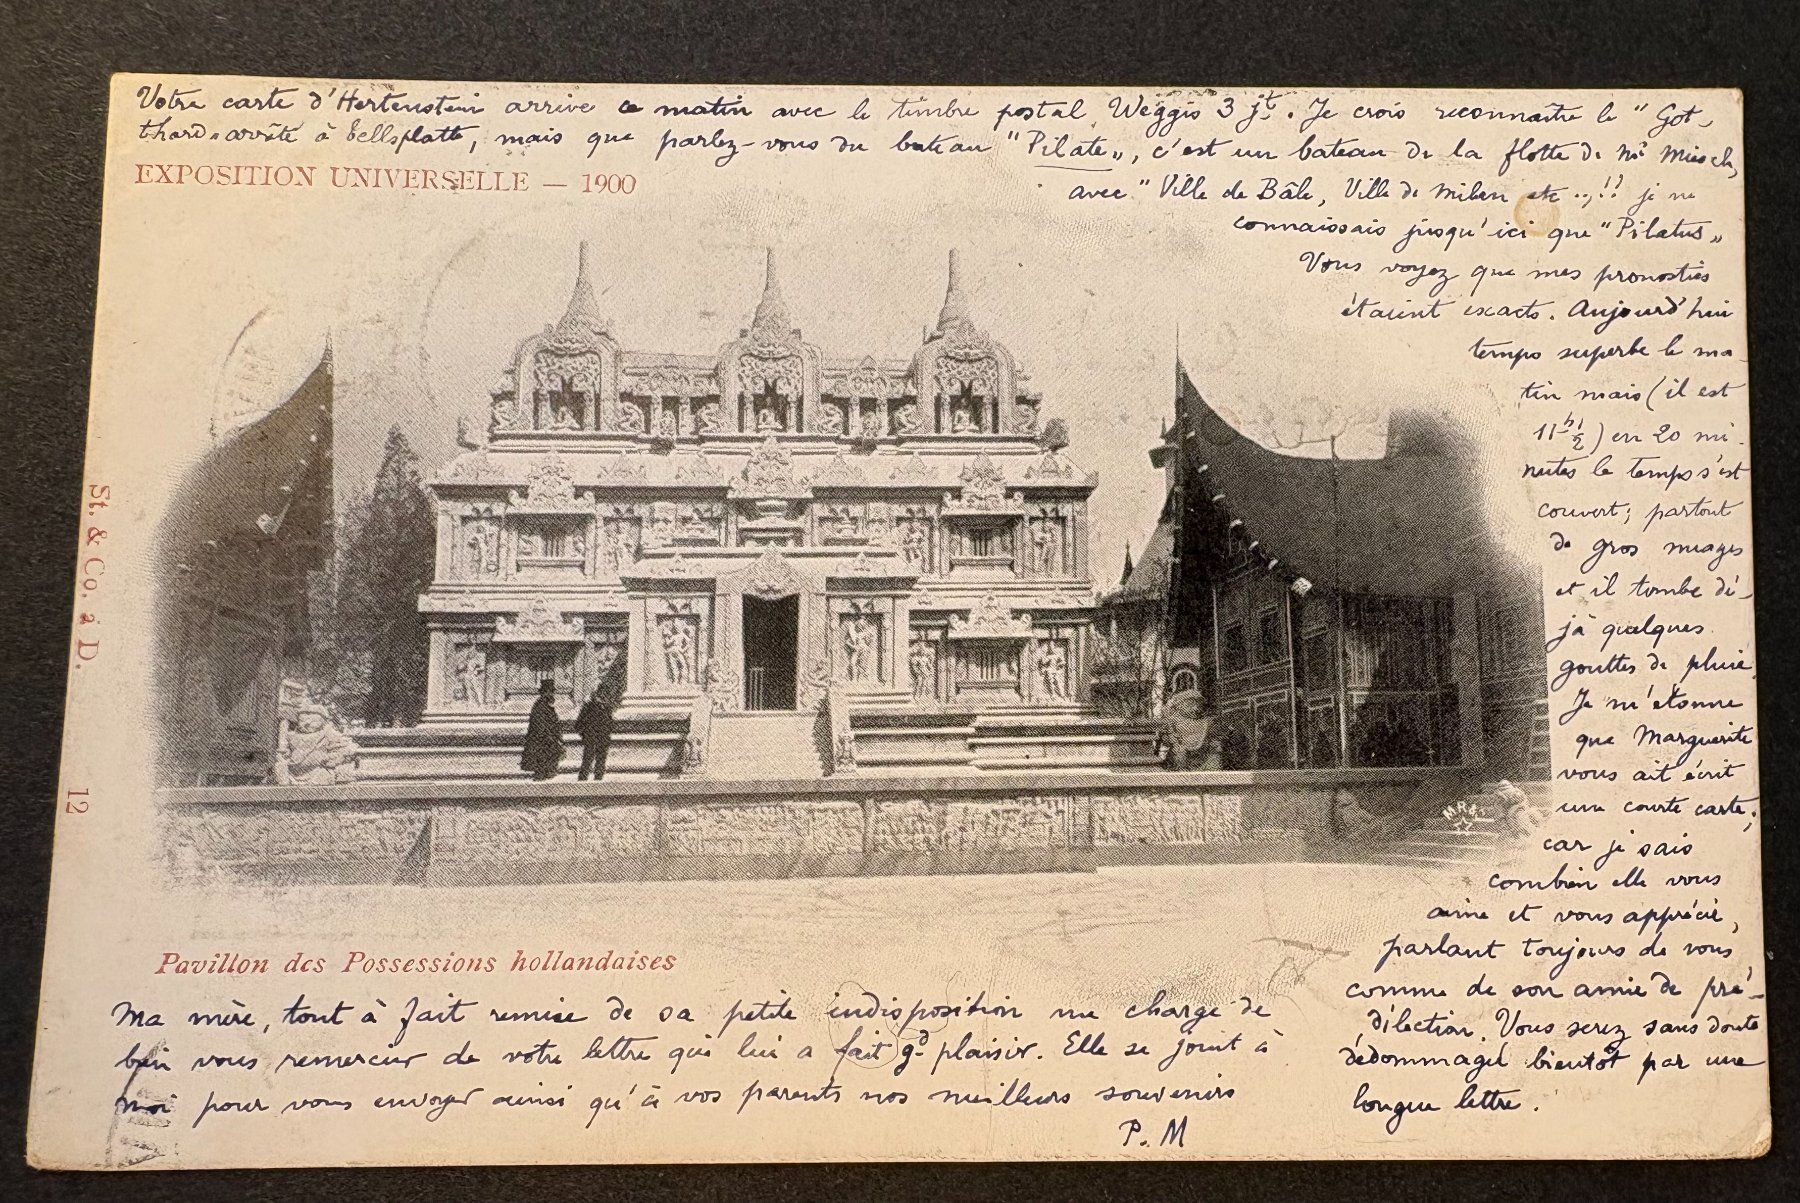 Votre carte d'Hertenstein arrive ce matin avec le timbre postal, Weggis 3 jt. Je crois reconnaître le "Got-
thard" arrête à Tellsplatte, mais que parlez-vous du bateau "Pilate", c'est un bateau de la flotte de Mr Miesch,
EXPOSITION UNIVERSELLE — 1900
avec "Ville de Bâle, Ville de Milan etc ..,!! je ne
connaissais jusqu'ici que "Pilatus"
Vous voyez que mes pronostics
étaient exacts. Aujourd'hui
temps superbe le ma-
tin mais (il est
11 h ½) en 20 mi-
nutes le temps s'est
couvert; partout
de gros nuages
et il tombe dé-
jà quelques
gouttes de pluie.
Je m'étonne
que Marguerite
vous ait écrit
une courte carte;
car je sais
combien elle vous
aime et vous apprécie,
parlant toujours de vous
comme de son amie de pré-
dilection. Vous serez sans doute
dédommagé bientôt par une
longue lettre.
St. & Co. à D. 12
M.R.&
Pavillon des Possessions hollandaises
Ma mère, tout à fait remise de sa petite indisposition me charge de
bien vous remercier de votre lettre qui lui a fait gd plaisir. Elle se joint à
moi pour vous envoyer ainsi qu'à vos parents nos meilleurs souvenirs
P. M